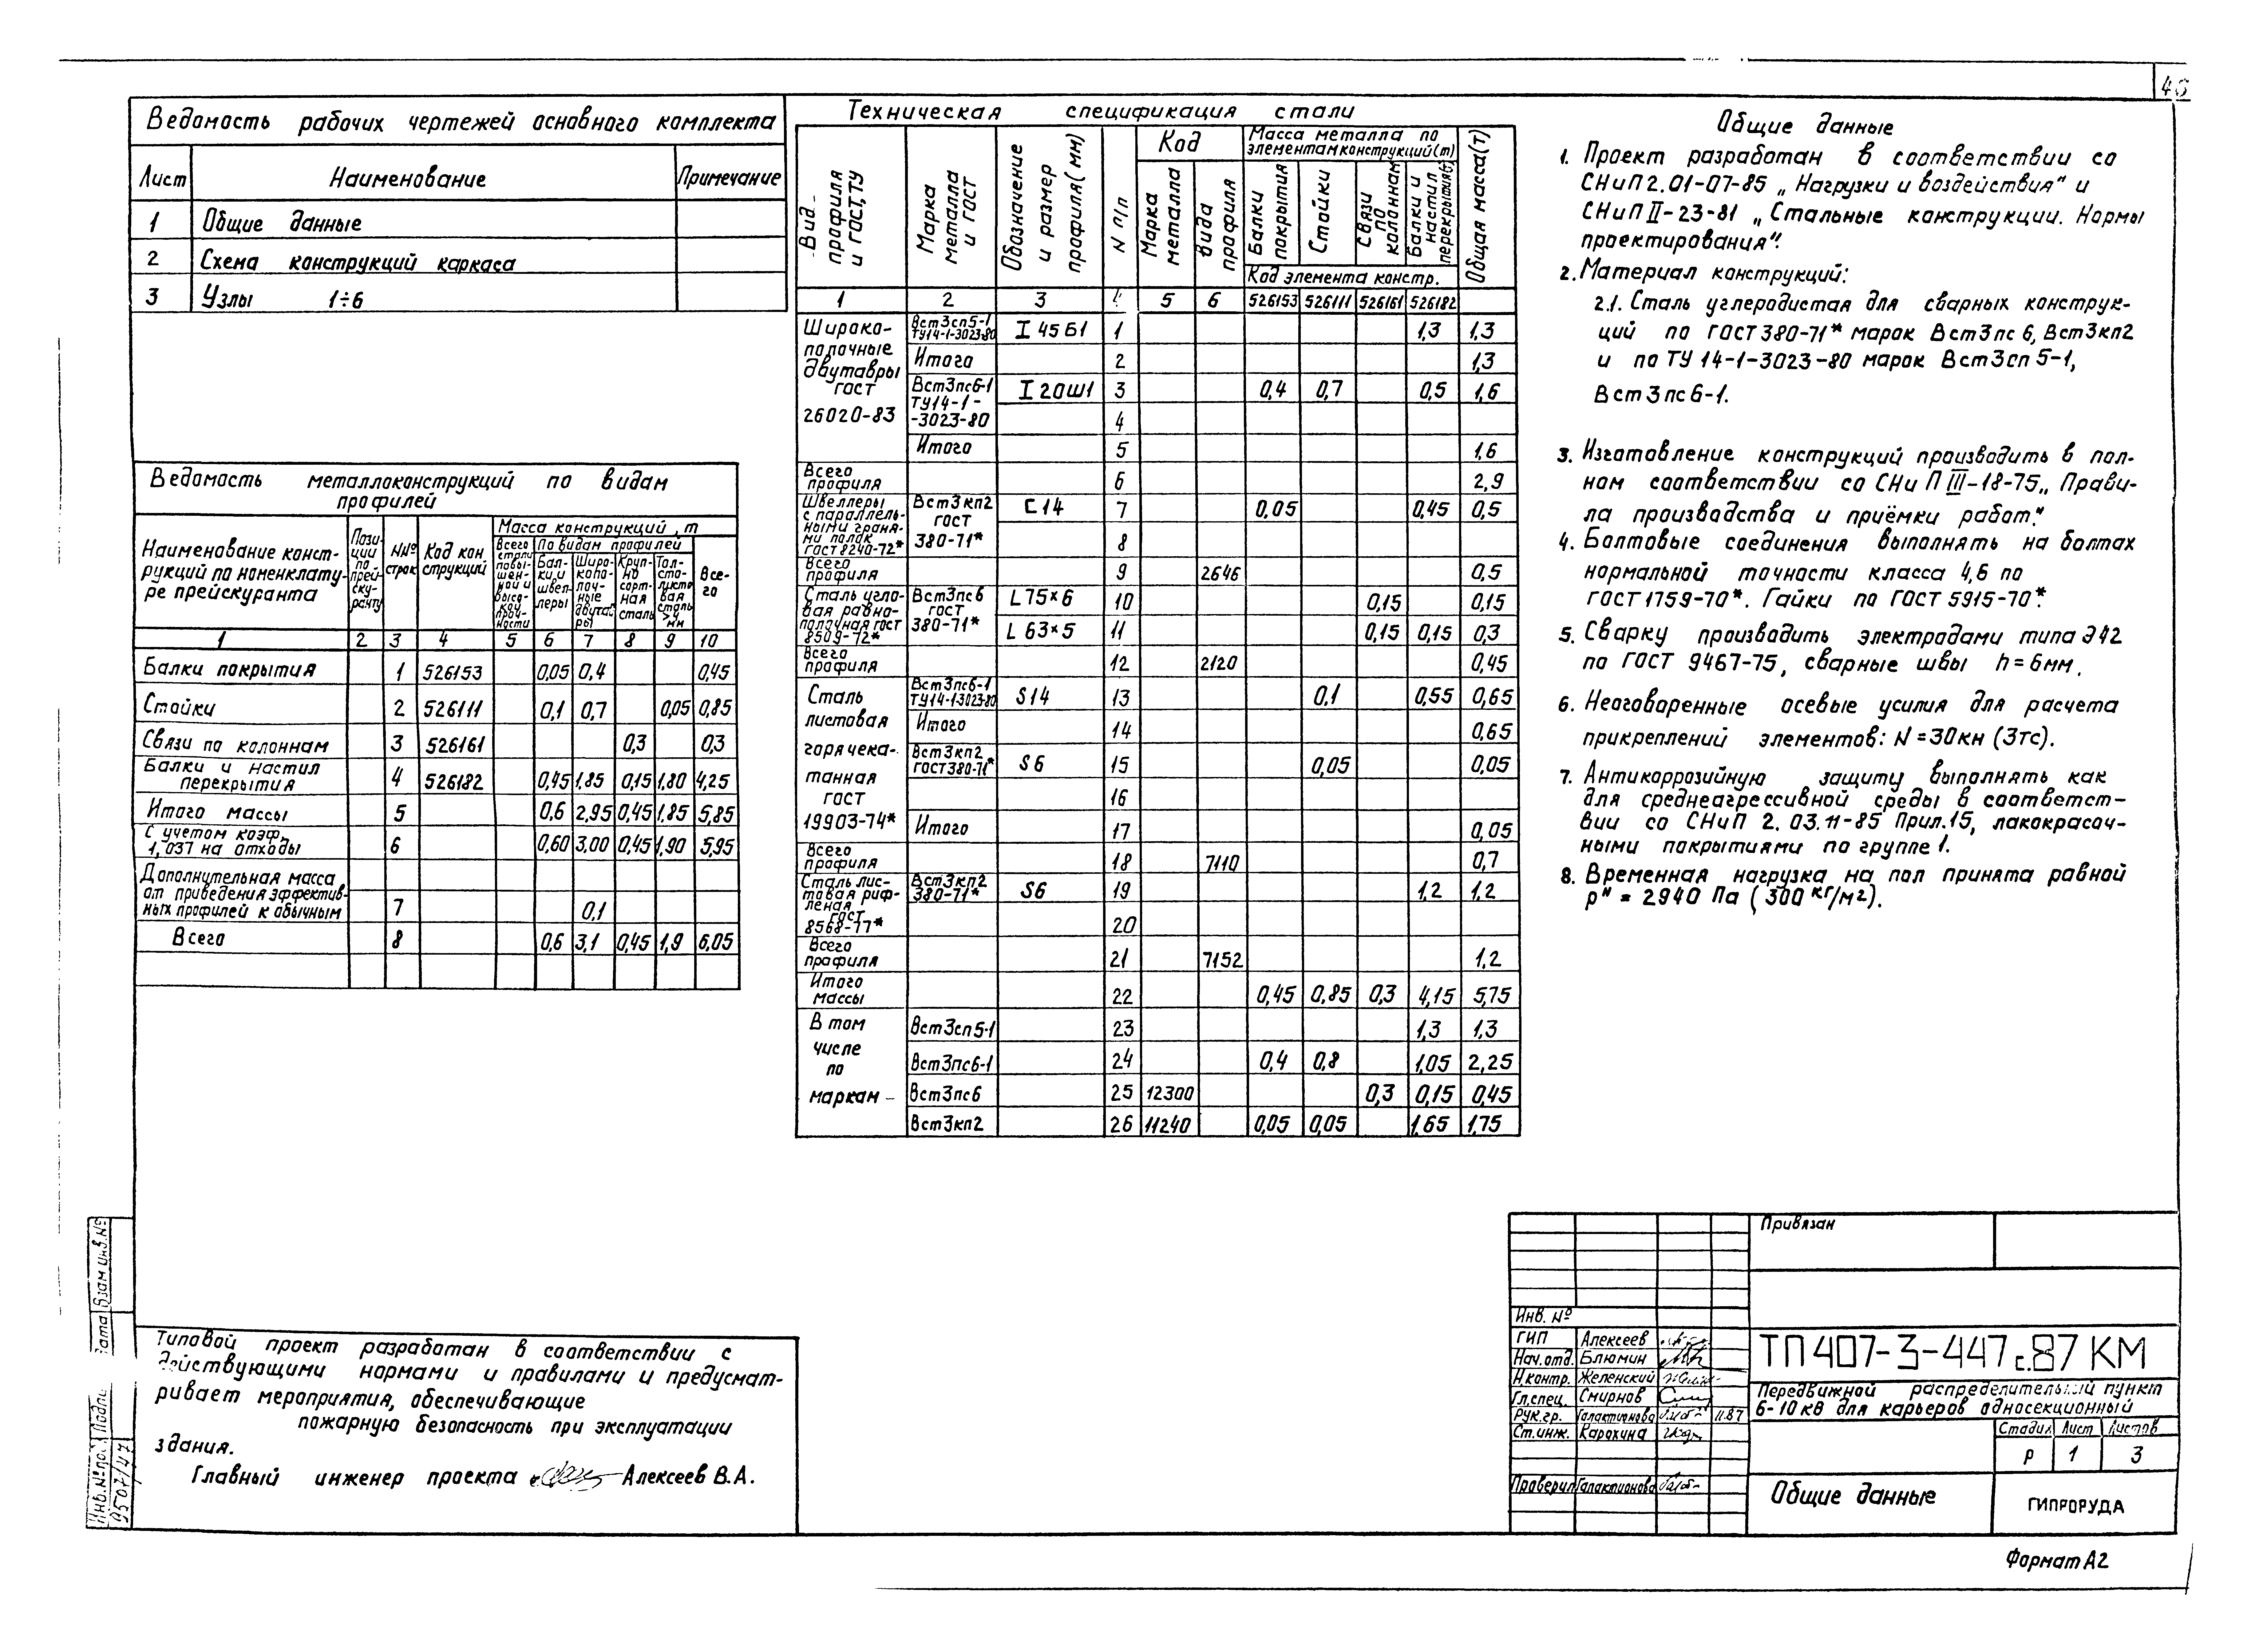 Ведомость рабочих чертежей основного комплекта
Лист Наименование Примечание
1 Общие данные
2 Схема конструкций каркаса
3 Узлы 1÷6
Ведомость металлоконструкций по видам
профилей
Наименование конст-
рукций по номенклату-
ре прейскуранта
Пози-
ции
по
прей-
ску-
ранту
NNº
строк
Код кон
струкций
Масса конструкций, т
Всего
стали
повы-
шен-
ной и
высо-
кой
проч-
ности
По видам профилей
Бал-
ки и
швел-
леры
Широ-
копо-
лоч-
ные
двутав
ры
Круп-
но
сорт-
ная
сталь
Тол-
сто-
листо
вая
сталь
>4
мм
Все-
го
1 2 3 4 5 6 7 8 9 10
Балки покрытия 1 526153 0,05 0,4 0,45
Стойки 2 526111 0,1 0,7 0,05 0,85
Связи по колоннам 3 526161 0,3 0,3
Балки и настил
перекрытия 4 526182 0,45 1,85 0,15 1,80 4,25
Итого массы 5 0,6 2,95 0,45 1,85 5,85
С учетом коэф.
1,037 на отходы 6 0,60 3,00 0,45 1,90 5,95
Дополнительная масса
от приведения эффектив-
ных профилей к обычным 7 0,1
Всего 8 0,6 3,1 0,45 1,9 6,05
Типовой проект разработан в соответствии с
действующими нормами и правилами и предусмат-
ривает мероприятия, обеспечивающие
пожарную безопасность при эксплуатации
здания.
Главный инженер проекта Алексеев В.А.
Техническая спецификация стали
Вид
профиля
и ГОСТ, ТУ
Марка
металла
и ГОСТ
Обозначение
и размер
профиля (мм)
N п/п
Код
Марка
металла
Вида
профиля
Масса металла по
элементам конструкций (т)
Балки
покрытия
Стойки
Связи
по
колоннам
Балки и
настил
перекрытия
Общая масса (т)
Код элемента констр.
1 2 3 4 5 6 526153 526111 526161 526182
Широко-
полочные
двутавры
ГОСТ
26020-83
Вст3сп5-1
ТУ14-1-3023-80 I 45Б1 1 1,3 1,3
Итого 2 1,3
Вст3пс6-1
ТУ14-1-
-3023-80 I 20Ш1 3 0,4 0,7 0,5 1,6
4
Итого 5 1,6
Всего
профиля 6 2,9
Швеллеры
с параллель-
ными граня-
ми полок
ГОСТ 8240-72*
Вст3кп2
ГОСТ
380-71* С14 7 0,05 0,45 0,5
8
Всего
профиля 9 2646 0,5
Сталь угло-
вая равно-
полочная ГОСТ
8509-72*
Вст3пс6
ГОСТ
380-71*
L75×6 10 0,15 0,15
L 63×5 11 0,15 0,15 0,3
Всего
профиля 12 2120 0,45
Сталь
листовая
горячека-
танная
ГОСТ
19903-74*
Вст3пс6-1
ТУ14-1-3023-80 S14 13 0,1 0,55 0,65
Итого 14 0,65
Вст3кп2
ГОСТ380-71* S6 15 0,05 0,05
16
Итого 17 0,05
Всего
профиля 18 7110 0,7
Сталь лис-
товая риф-
леная
ГОСТ
8568-77*
Вст3кп2
380-71* S6 19 1,2 1,2
20
Всего
профиля 21 7152 1,2
Итого
массы 22 0,45 0,85 0,3 4,15 5,75
В том
числе
по
маркам -
Вст3сп5-1 23 1,3 1,3
Вст3пс6-1 24 0,4 0,8 1,05 2,25
Вст3пс6 25 12300 0,3 0,15 0,45
Вст3кп2 26 11240 0,05 0,05 1,65 1,75
Общие данные
1. Проект разработан в соответствии со
СНиП 2.01-07-85 „Нагрузки и воздействия" и
СНиП II-23-81 „Стальные конструкции. Нормы
проектирования".
2. Материал конструкций:
2.1. Сталь углеродистая для сварных конструк-
ций по ГОСТ 380-71* марок Вст3пс 6, Вст3кп2
и по ТУ 14-1-3023-80 марок Вст3сп 5-1,
Вст3пс 6-1.
3. Изготовление конструкций производить в пол-
ном соответствии со СНиП III-18-75„ Прави-
ла производства и приёмки работ."
4. Болтовые соединения выполнять на болтах
нормальной точности класса 4,6 по
ГОСТ 1759-70*. Гайки по ГОСТ 5915-70*.
5. Сварку производить электродами типа Э42
по ГОСТ 9467-75, сварные швы h=6мм.
6. Неоговоренные осевые усилия для расчета
прикреплений элементов: N=30кн (3тс).
7. Антикоррозийную защиту выполнять как
для среднеагрессивной среды в соответст-
вии со СНиП 2.03.11-85 Прил.15, лакокрасоч-
ными покрытиями по группе 1.
8. Временная нагрузка на пол принята равной
рⁿ = 2940 Па (300 кг/м²).
Привязан
Инв. Nº
ГИП Алексеев
Нач.отд. Блюмин
Н.контр. Желенский
Гл.спец. Смирнов
Рук.гр. Галактионова 11.87
Ст.инж. Карохина
Проверил Галактионова
ТП 407-3-447с.87 КМ
Передвижной распределительный пункт
6-10кВ для карьеров односекционный
Стадия Лист Листов
Р 1 3
Общие данные
ГИПРОРУДА
Формат А2
Взам инв.Nº
Инв.Nºпо
9507/47